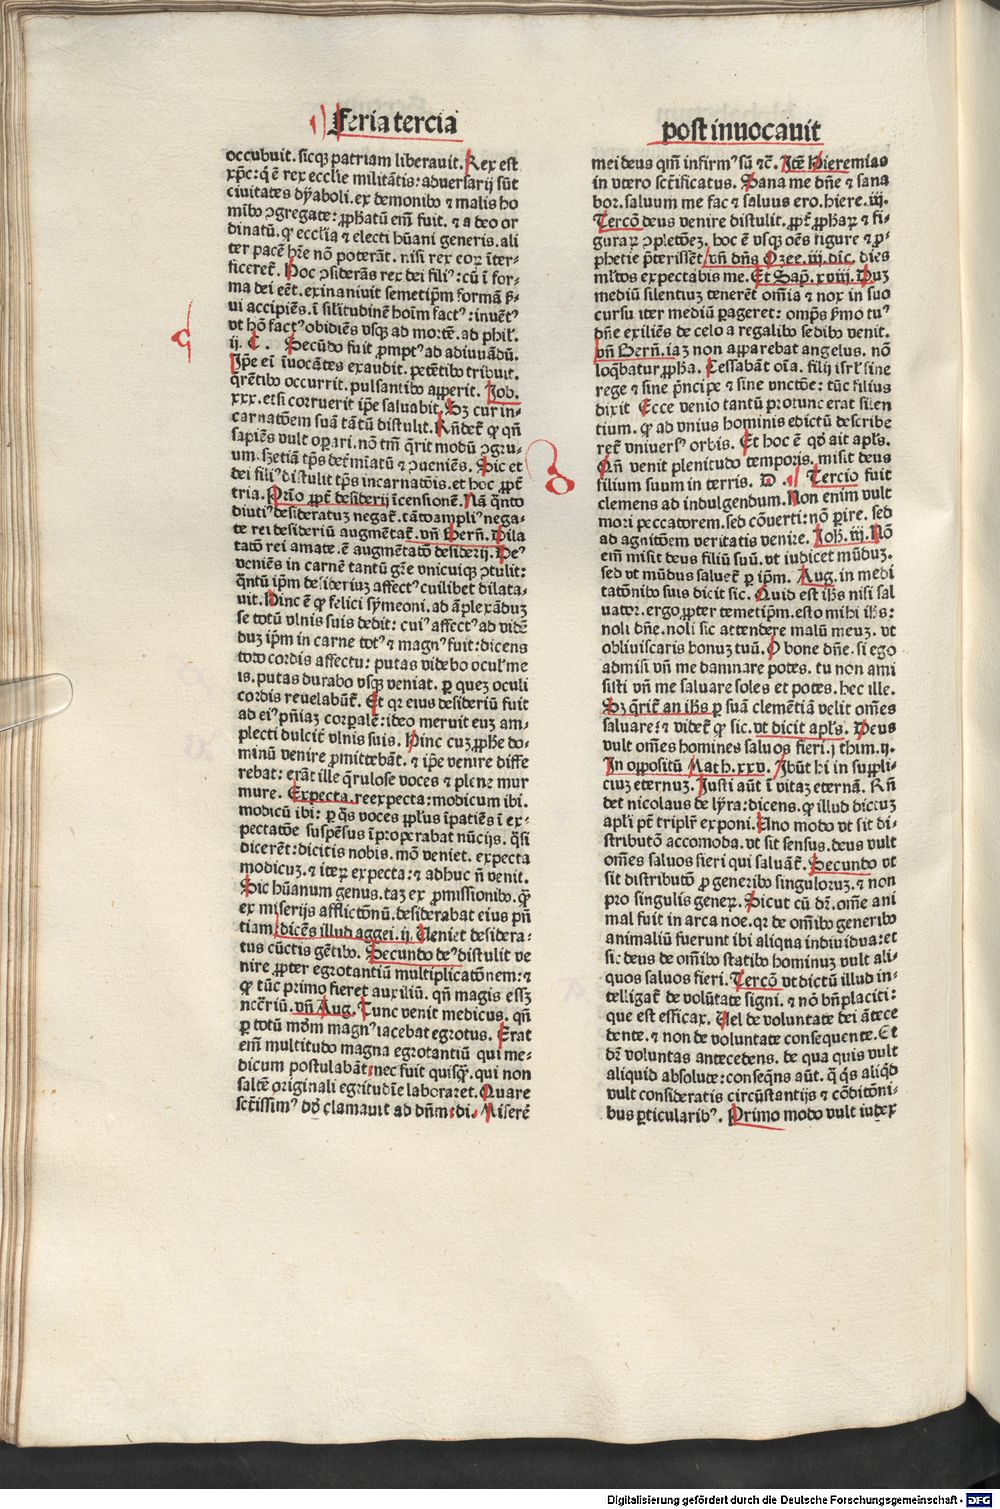 Feria tercia
post inuocauit
occubuit. sicq̃ patriam liberauit. Rex est
xp̃c: q̃ ẽ rex ecclie militãtis: aduersarij sũt
ciuitates dẏaboli. ex demonibꝰ ⁊ malis ho
mĩbꝰ ꝯgregate: ꝓphatũ em̃ fuit. ⁊ a deo or
dinatũ. ꝙ ecclia ⁊ electi hũani generis. ali
ter pacẽ hr̃e nõ poterãt. nisi rex eoꝝ ĩter⸗
ficeret̃. Hoc ꝯsiderãs rex dei filiꝰ: cũ ĩ for⸗
ma dei eẽt. exinaniuit semetip̃m formã ẜ⸗
ui accipiẽs. ĩ sil̃itudinẽ hoĩm factꝰ: inuẽtꝰ
vt hõ factꝰ obidiẽs vsq̃ ad mortẽ. ad phil̃.
ij. C. Secũdo fuit ꝓmptꝰ ad adiuuãdũ.
Ip̃e ei ĩuocãtes exaudit. petẽtibꝰ tribuit.
q̃rẽtibꝰ occurrit. pulsantibꝰ aꝑperit. Job.
xxx. etsi corruerit ip̃e saluabit. Sꝫ cur in⸗
carnatõem suã tãtũ distulit. Rñdet̃ ꝙ qñ
sapiẽs vult oꝑari. nõ tm̃ q̃rit modũ ꝯgru⸗
um. sꝫ etiã tp̃s det̃mĩatũ ⁊ ꝯueniẽs. Sic et
dei filiꝰ distulit tp̃s incarnatõis. et hoc ꝓpt̃
tria. Prĩo ꝓpt̃ desiderij ĩcensionẽ. Nã q̃nto
diutiꝰ desideratuꝫ negat̃. tãto ampliꝰ nega⸗
te rei desideriũ augmẽtat̃. vñ Bern̄. Dila
tatõ rei amate. ẽ augmẽtatõ desiderij. Deꝰ
veniẽs in carnẽ tantũ gr̃e vnicuiq̃ ꝯtulit:
q̃ntũ ip̃m desideriuꝫ affectꝰ cuilibet dilata⸗
uit. Hinc ẽ ꝙ felici sẏmeoni. ad ãplexãduꝫ
se totũ vlnis suis dedit: cuiꝰ affectꝰ ad vidẽ
duꝫ ip̃m in carne totꝰ ⁊ magnꝰ fuit: dicens
toto cordis affectu: putas videbo oculꝰ me
is. putas durabo vsq̃ veniat. ꝑ queꝫ oculi
cordis reuelabũt̃. Et qꝛ eius desideriũ fuit
ad eiꝰ pñiaꝫ corꝑalẽ: ideo meruit euꝫ am⸗
plecti dulcit̃ vlnis suis. Hinc cuꝫ ꝓphe do⸗
minũ venire ꝓmittebãt. ⁊ ip̃e venire diffe
rebat: erãt ille q̃rulose voces ⁊ plene mur
mure. Expecta reexpecta: modicum ibi.
modicũ ibi: ꝑ q̃s voces ꝓpl̃us ĩpatiẽs ĩ ex⸗
pectatõe suspẽsus ĩproperabat nũcijs. q̃si
dicerẽt: dicitis nobis. mõ veniet. expecta
modicuꝫ. ⁊ iteꝝ expecta: ⁊ adhuc ñ venit.
Sic hũanum genus. taꝫ ex ꝓmissionibꝰ. q̃ꝫ
ex miserijs afflictõnũ. desiderabat eius pñ
tiam: dicẽs illud aggei. ij. Ueniet desidera⸗
tus cũctis gẽtibꝰ. Secundo deꝰ distulit ve
nire ꝓpter egrotantiũ multiplicatõnem: ⁊
ꝙ tũc primo fieret auxiliũ. qñ magis essꝫ
nc̃c̃riũ. vñ Aug. Tunc venit medicus. qñ
ꝑ totũ mõm magnꝰ iacebat egrotus. Erat
em̃ multitudo magna egrotantiũ qui me⸗
dicum postulabãt: nec fuit quisq̃. qui non
saltẽ originali egritudĩe laboraret. Quare
sct̃issimꝰ dd̃ clamauit ad dñm: di. Miserẽ
mei deus qm̃ infirmꝰ sũ ⁊c̃. Itẽ Hieremias
in vtero sct̃ificatus. Sana me dñe ⁊ sana
bor. saluum me fac ⁊ saluus ero. hiere. iij.
Tercõ deus venire distulit. ꝓpt̃ ꝓphaꝝ ⁊ fi⸗
guraꝝ ꝯpletõeꝫ. hoc ẽ vsq̃ oẽs figure ⁊ ꝓ⸗
phetie p̃terissẽt. vñ dñs Ozee. iij. dic̃. dies
ml̃tos expectabis me. Et Sap̃. xviii. Duꝫ
mediũ silentiuꝫ tenerẽt om̃ia ⁊ nox in suo
cursu iter mediũ ꝑageret: omp̃s ẜmo tuꝰ
dñe exiliẽs de celo a regalibꝰ sedibꝰ venit.
vñ Bern̄. iaꝫ non apparebat angelus. nõ
loq̃batur ꝓpha. Cessabãt oĩa. filij isrl̃ sine
rege ⁊ sine p̃ncipe ⁊ sine vnctõe: tũc filius
dixit Ecce venio tantũ protunc erat silen
tium. ꝙ ad vnius hominis edictũ describe
ret̃ vniuersꝰ orbis. Et hoc ẽ qd̃ ait apl̃s.
Qñ venit plenitudo temporis. misit deus
filium suum in terris. D. Tercio fuit
clemens ad indulgendum. Non enim vult
mori peccatorem. sed cõuerti: nõ ꝑire. sed
ad agnitõem veritatis venire. Joh̃. iij. Nõ
em̃ misit deus filiũ suũ. vt iudicet mũduꝫ.
sed vt mũdus saluet̃ ꝑ ip̃m. Aug. in medi
tatõnibꝰ suis dicit sic. Quid est ih̃s nisi sal
uator. ergo ꝓpter temetip̃m. esto mihi ih̃s:
noli dñe. noli sic attendere malũ meuꝫ. vt
obliuiscaris bonuꝫ tuũ. O bone dñe. si ego
admisi vñ me damnare potes. tu non ami
sisti vñ me saluare soles et potes. hec ille.
Sꝫ q̃rit̃ an ih̃s ꝑ suã clemẽtiã velit om̃es
saluare: ⁊ videt̃ ꝙ sic. vt dicit apl̃s. Deus
vult om̃es homines saluos fieri. j thim. ij.
In oppositũ Math. xxv. Ibũt hi in suppli⸗
ciuꝫ eternuꝫ. Justi aũt ĩ vitaꝫ eternã. Rñ
det nicolaus de lẏra: dicens. ꝙ illud dictuꝫ
apl̃i pt̃ triplr̃ exponi. Uno modo vt sit di⸗
stributõ accomoda. vt sit sensus. deus vult
om̃es saluos fieri qui saluãt̃. Secundo vt
sit distributõ ꝓ generibꝰ singuloruꝫ. ⁊ non
pro singulis generꝝ. Sicut cũ dr̃. om̃e ani
mal fuit in arca noe. qꝛ de om̃ibꝰ generibꝰ
animaliũ fuerunt ibi aliqua indiuidua: et
si: deus de om̃ibꝰ statibꝰ hominuꝫ vult ali⸗
quos saluos fieri. Tercõ vt dictũ illud in⸗
telligat̃ de volũtate signi. ⁊ nõ bñplaciti:
que est efficax. Uel de voluntate dei ãtece
dente. ⁊ non de voluntate consequente. Et
dr̃ voluntas antecedens. de qua quis vult
aliquid absolute: conseq̃ns aũt. q̃ q̃s aliqd̃
vult consideratis circũstantijs ⁊ cõditõni⸗
bus ꝑticularibꝰ. Primo modo vult iudex
Digitalisierung gefördert durch die Deutsche Forschungsgemeinschaft - DFG